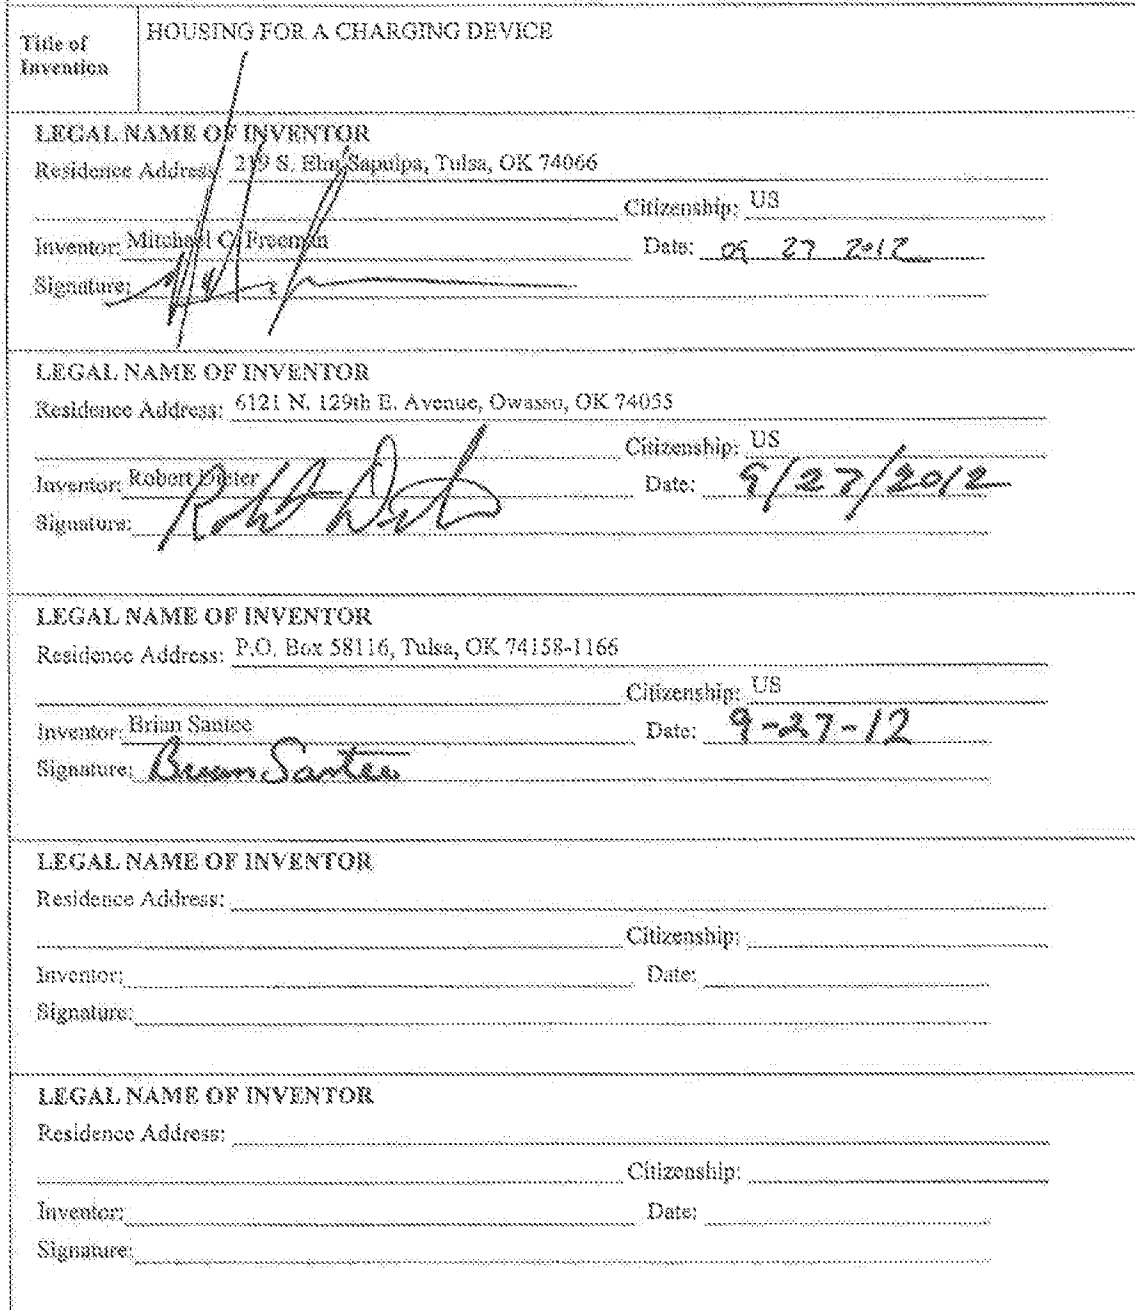 Title of Invention
HOUSING FOR A CHARGING DEVICE
LEGAL NAME OF INVENTOR
Residence Address: 219 S. Elm Sapulpa, Tulsa, OK 74066
Citizenship: US
Inventor: Mitchael C. Freeman Date: 09 27 2012
Signature:
LEGAL NAME OF INVENTOR
Residence Address: 6121 N. 129th E. Avenue, Owasso, OK 74055
Citizenship: US
Inventor: Robert Dieter Date: 9/27/2012
Signature: Robert Dieter
LEGAL NAME OF INVENTOR
Residence Address: P.O. Box 58116, Tulsa, OK 74158-1166
Citizenship: US
Inventor: Brian Santee Date: 9-27-12
Signature: Brian Santee
LEGAL NAME OF INVENTOR
Residence Address:
Citizenship:
Inventor: Date:
Signature:
LEGAL NAME OF INVENTOR
Residence Address:
Citizenship:
Inventor: Date:
Signature: